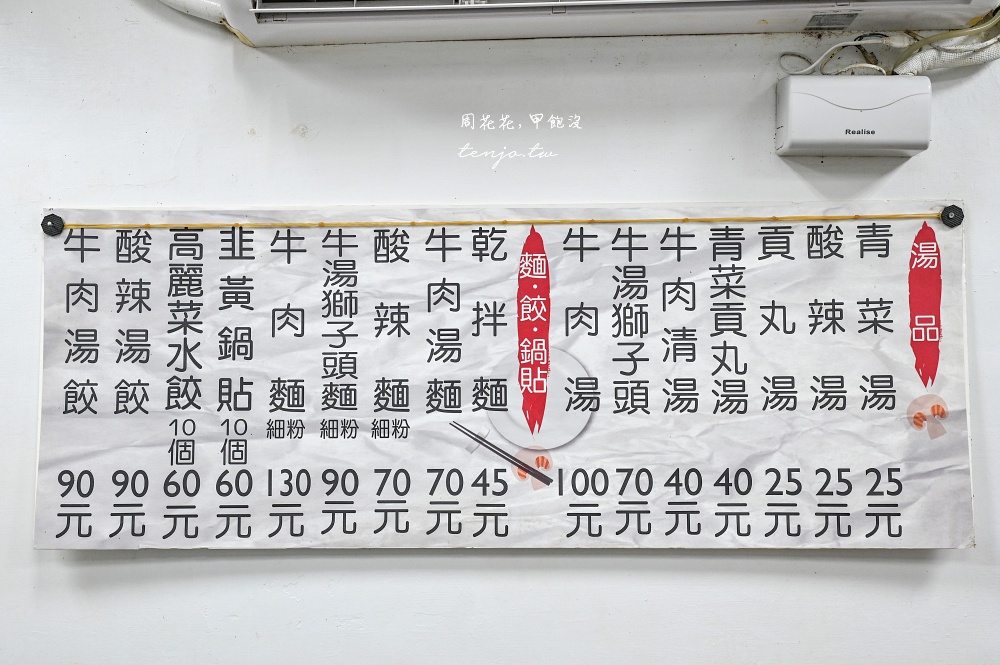 周花花，甲飽沒
tenjo.tw
Realise
湯品
青菜湯 25元
酸辣湯 25元
貢丸湯 25元
青菜貢丸湯 40元
牛肉清湯 40元
牛湯獅子頭 70元
牛肉湯 100元
麵·餃·鍋貼
乾拌麵 45元
牛肉湯麵 70元
酸辣麵 細粉 70元
牛湯獅子頭麵 細粉 90元
牛肉麵 細粉 130元
韭黃鍋貼 10個 60元
高麗菜水餃 10個 60元
酸辣湯餃 90元
牛肉湯餃 90元